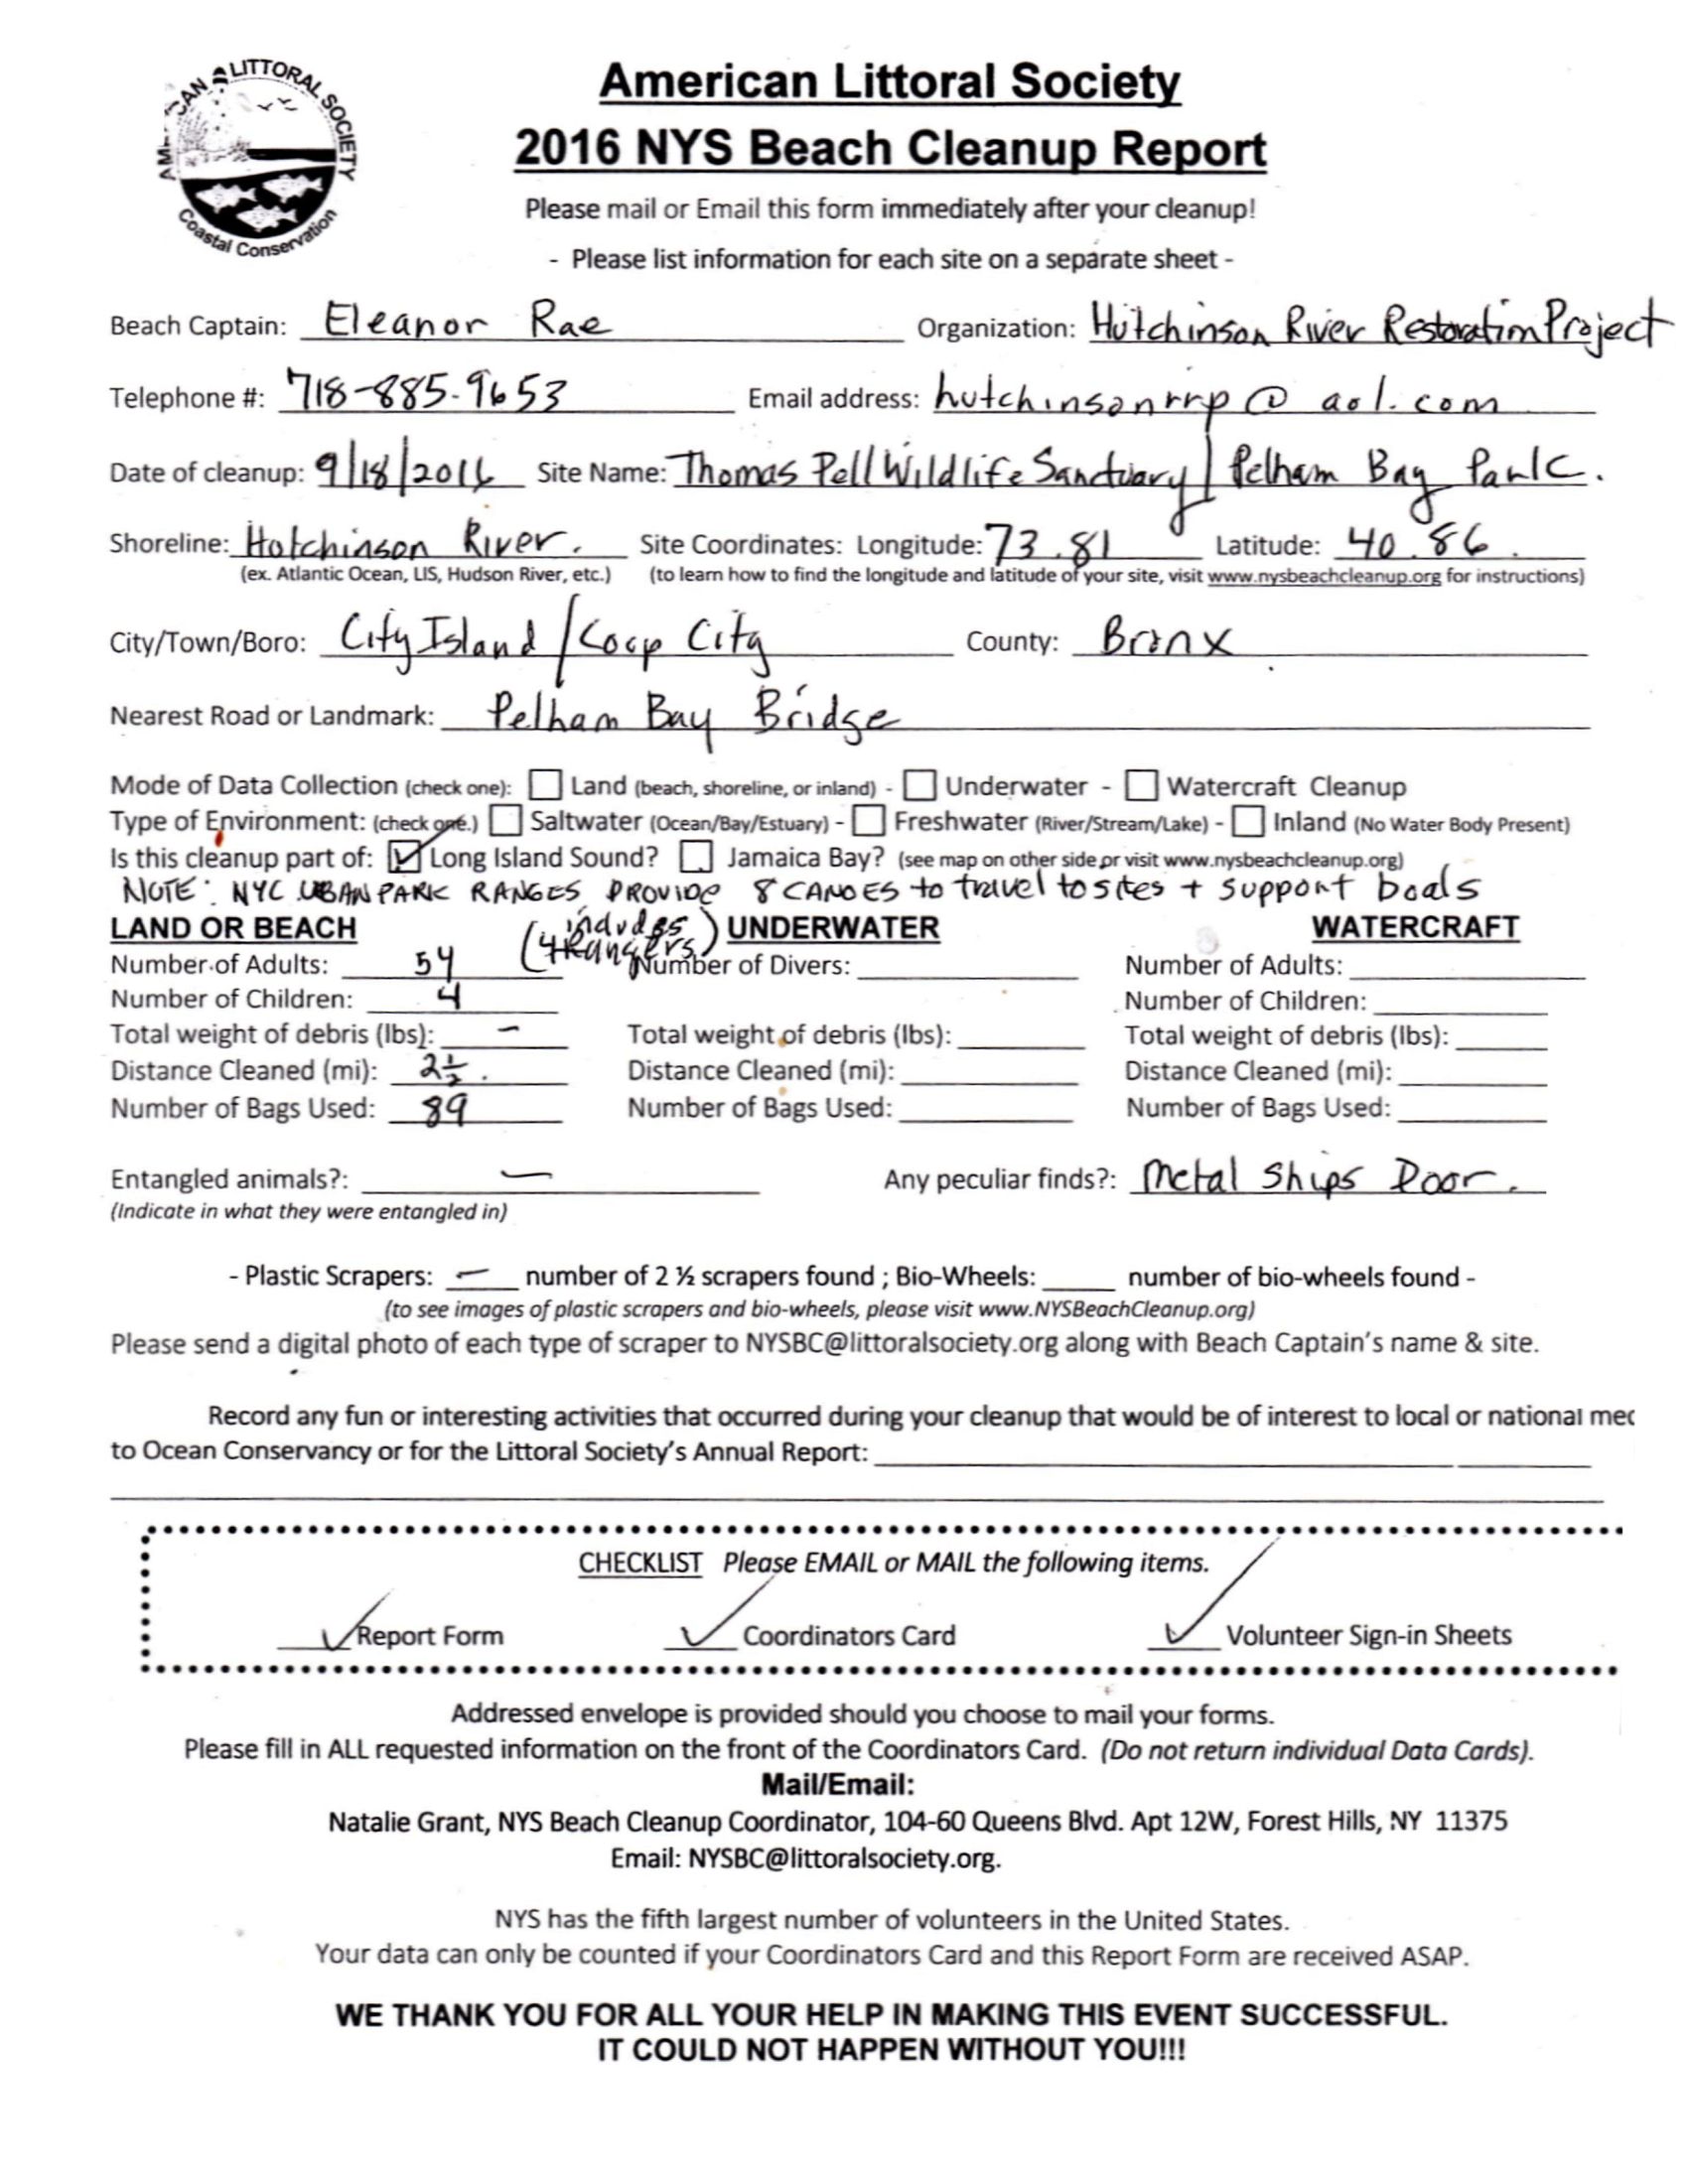 AMERICAN LITTORAL SOCIETY
Coastal Conservation
American Littoral Society
2016 NYS Beach Cleanup Report
Please mail or Email this form immediately after your cleanup!
- Please list information for each site on a separate sheet -
Beach Captain: Eleanor Rae Organization: Hutchinson River Restoration Project
Telephone #: 718-885-9653 Email address: hutchinsonrrp@aol.com
Date of cleanup: 9/18/2016 Site Name: Thomas Pell Wildlife Sanctuary/Pelham Bay Park.
Shoreline: Hutchinson River. Site Coordinates: Longitude: 73.81 Latitude: 40.86.
(ex. Atlantic Ocean, LIS, Hudson River, etc.) (to learn how to find the longitude and latitude of your site, visit www.nysbeachcleanup.org for instructions)
City/Town/Boro: City Island/Coop City County: Bronx
Nearest Road or Landmark: Pelham Bay Bridge
Mode of Data Collection (check one): Land (beach, shoreline, or inland) - Underwater - Watercraft Cleanup
Type of Environment: (check one.) Saltwater (Ocean/Bay/Estuary) - Freshwater (River/Stream/Lake) - Inland (No Water Body Present)
Is this cleanup part of: ✓ Long Island Sound? Jamaica Bay? (see map on other side or visit www.nysbeachcleanup.org)
NOTE: NYC URBAN PARK RANGES PROVIDE 8 CANOES to travel to sites + support boals
LAND OR BEACH (includes 4 Rangers) UNDERWATER WATERCRAFT
Number of Adults: 54 Number of Divers: Number of Adults:
Number of Children: 4 Number of Children:
Total weight of debris (lbs): - Total weight of debris (lbs): Total weight of debris (lbs):
Distance Cleaned (mi): 2½. Distance Cleaned (mi): Distance Cleaned (mi):
Number of Bags Used: 89 Number of Bags Used: Number of Bags Used:
Entangled animals?: - Any peculiar finds?: Metal Ships Door.
(Indicate in what they were entangled in)
- Plastic Scrapers: - number of 2 ½ scrapers found ; Bio-Wheels: number of bio-wheels found -
(to see images of plastic scrapers and bio-wheels, please visit www.NYSBeachCleanup.org)
Please send a digital photo of each type of scraper to NYSBC@littoralsociety.org along with Beach Captain's name & site.
Record any fun or interesting activities that occurred during your cleanup that would be of interest to local or national med
to Ocean Conservancy or for the Littoral Society's Annual Report:
CHECKLIST Please EMAIL or MAIL the following items.
✓ Report Form ✓ Coordinators Card ✓ Volunteer Sign-in Sheets
Addressed envelope is provided should you choose to mail your forms.
Please fill in ALL requested information on the front of the Coordinators Card. (Do not return individual Data Cards).
Mail/Email:
Natalie Grant, NYS Beach Cleanup Coordinator, 104-60 Queens Blvd. Apt 12W, Forest Hills, NY 11375
Email: NYSBC@littoralsociety.org.
NYS has the fifth largest number of volunteers in the United States.
Your data can only be counted if your Coordinators Card and this Report Form are received ASAP.
WE THANK YOU FOR ALL YOUR HELP IN MAKING THIS EVENT SUCCESSFUL.
IT COULD NOT HAPPEN WITHOUT YOU!!!